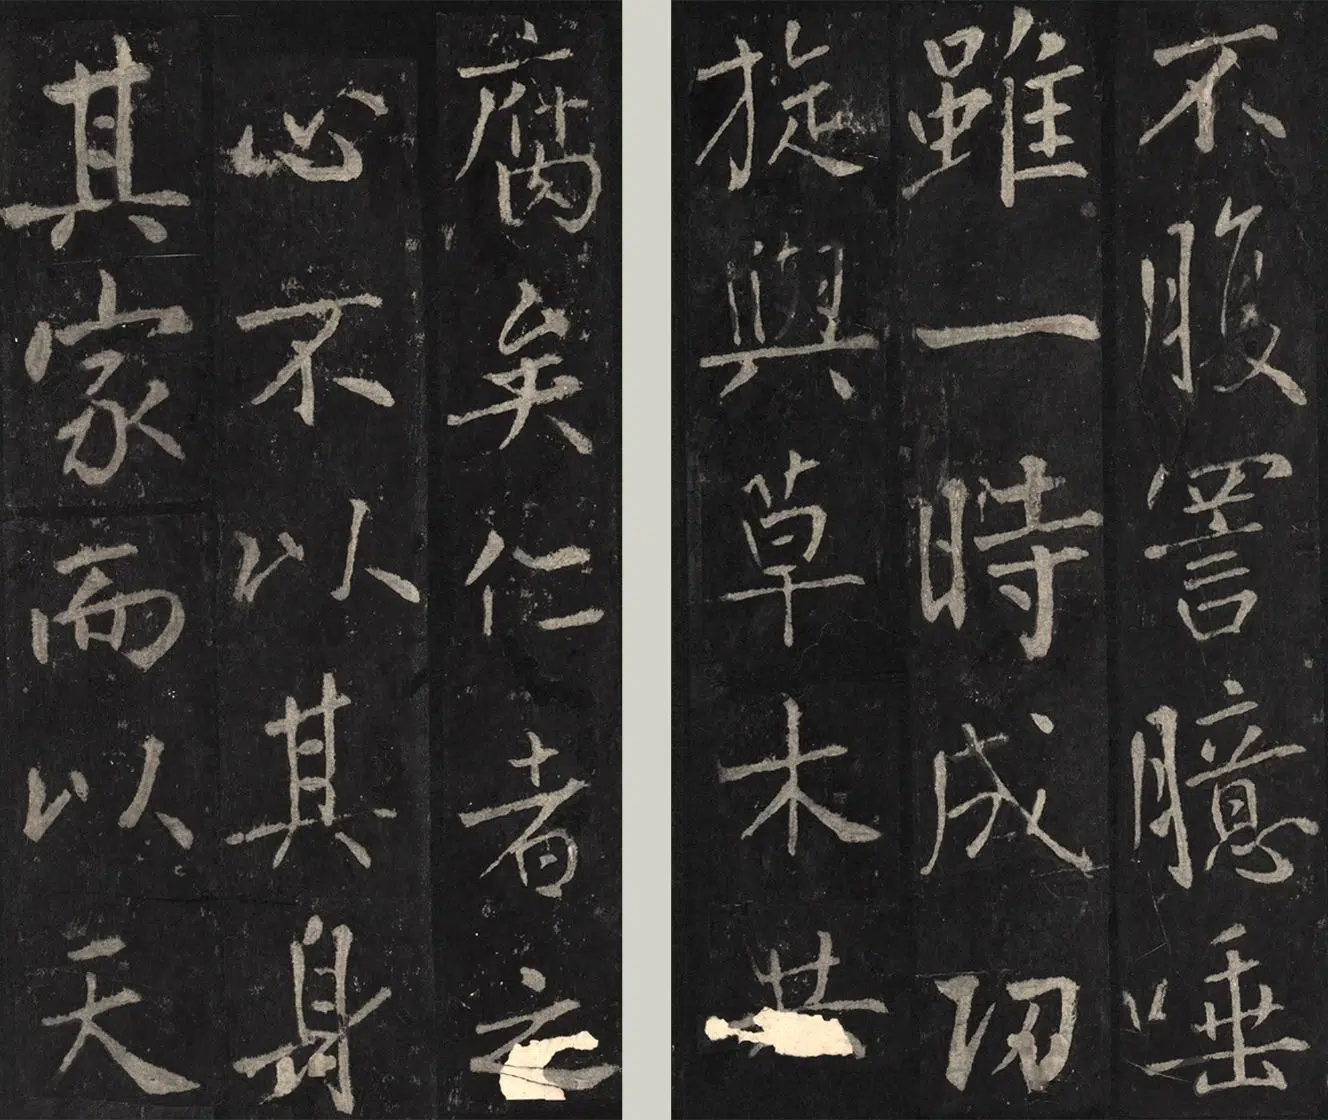 不腹詈臆唾
雖一時成功
旋與草木共
腐矣仁者之
心不以其身
其家而以天